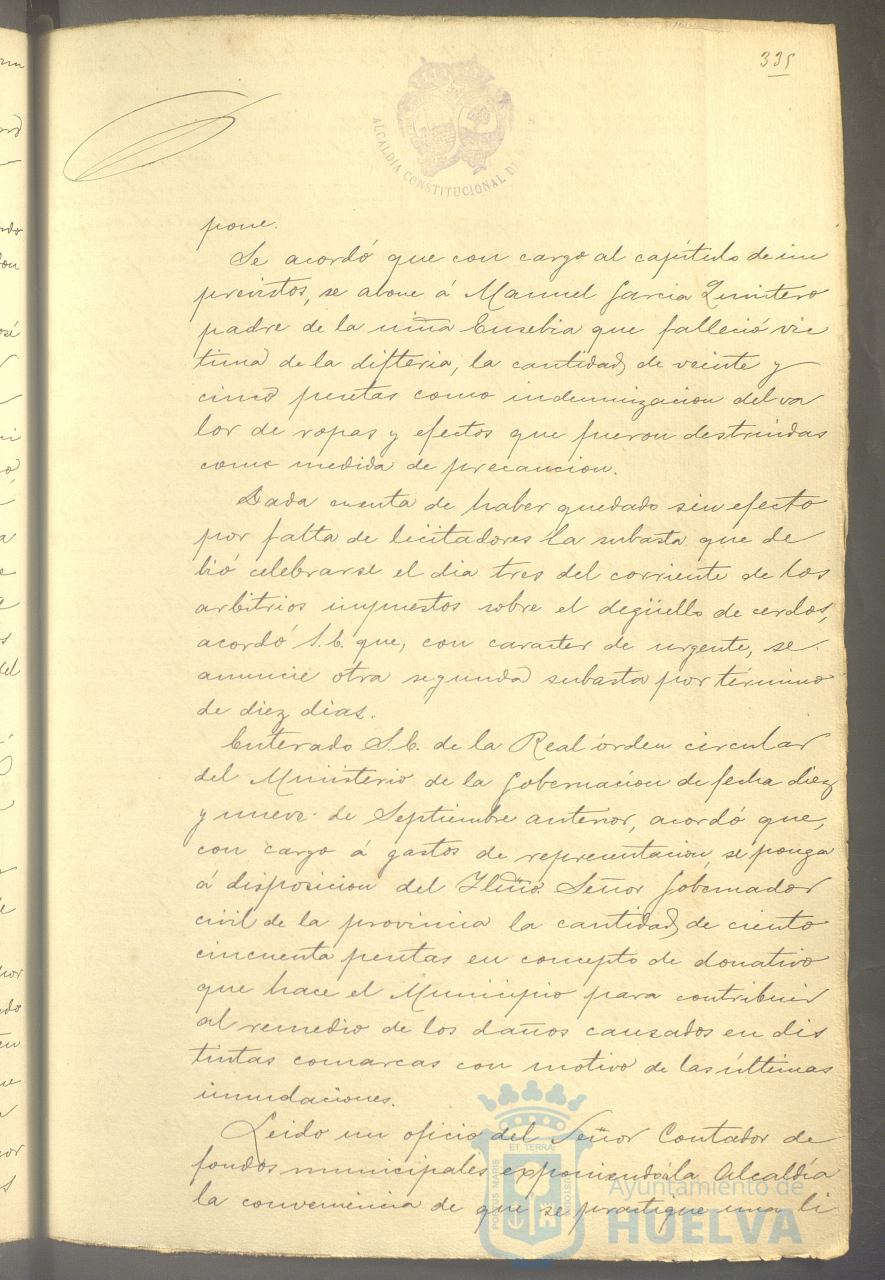 335
ALCALDÍA CONSTITUCIONAL DE
pone.
Se acordó que con cargo al capítulo de im
previstos, se abone á Manuel Garcia Quintero
padre de la niña Eusebia que falleció víc
tima de la difteria, la cantidad de veinte y
cinco pesetas como indemnizacion del va
lor de ropas y efectos que fueron destruidas
como medida de precaucion.
Dada cuenta de haber quedado sin efecto
por falta de licitadores la subasta que de
bió celebrarse el dia tres del corriente de los
arbitrios impuestos sobre el degüello de cerdos,
acordó S.C. que, con caracter de urgente, se
anuncie otra segunda subasta por término
de diez dias.
Enterado S.C. de la Real órden circular
del Ministerio de la Gobernacion de fecha diez
y nueve de Septiembre anterior, acordó que,
con cargo á gastos de representacion, se ponga
á disposicion del Iltmo. Señor Gobernador
civil de la provincia la cantidad de ciento
cincuenta pesetas en concepto de donativo
que hace el Municipio para contribuir
al remedio de los daños causados en dis
tintas comarcas con motivo de las últimas
inundaciones.
Leido un oficio del Señor Contador de
fondos municipales exponiendo á la Alcaldía
la conveniencia de que se practique una li
PORTUS MARIS
ET TERRÆ
CUSTODIA
Ayuntamiento de
HUELVA